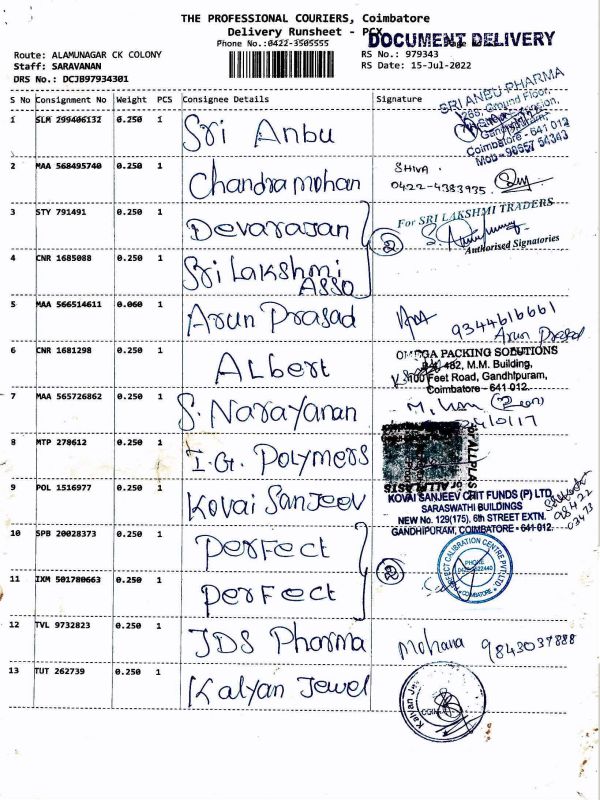 THE PROFESSIONAL COURIERS, Coimbatore
Delivery Runsheet - PCX
DOCUMENT DELIVERY
Phone No.:0422-3505555
Route: ALAMUNAGAR CK COLONY
RS No.: 979343
Staff: SARAVANAN
RS Date: 15-Jul-2022
DRS No.: DCJB97934301
S No Consignment No Weight PCS Consignee Details Signature
1 SLM 299406132 0.250 1 Sri Anbu
SRI ANBU PHARMA
Ground Floor,
Coimbatore - 641 012
Mob - 90657 54343
2 MAA 568495740 0.250 1 Chandra mohan
SHIVA.
0422-4383935
3 STY 791491 0.250 1 Devarajan
For SRI LAKSHMI TRADERS
Authorised Signatories
2
4 CNR 1685088 0.250 1 Sri Lakshmi
Asso
5 MAA 566514611 0.060 1 Arun Prasad
9344616661
Arun Prasad
6 CNR 1681298 0.250 1 Albert
OMEGA PACKING SOLUTIONS
482, M.M. Building,
100 Feet Road, Gandhipuram,
Coimbatore - 641 012.
7 MAA 565726862 0.250 1 S. Narayanan
8 MTP 278612 0.250 1 I.G. Polymers
9 POL 1516977 0.250 1 Kovai Sanjeev
KOVAI SANJEEV CHIT FUNDS (P) LTD
SARASWATHI BUILDINGS
NEW No. 129(175), 6th STREET EXTN.
GANDHIPURAM, COIMBATORE - 641 012.
10 SPB 20028373 0.250 1 Perfect
2
PERFECT CALIBRATION CENTRE PVT LTD
PHONE
COIMBATORE
11 IXM 501780663 0.250 1 Perfect
12 TVL 9732823 0.250 1 JDS Pharma
Mohana 9843037888
13 TUT 262739 0.250 1 Kalyan Jewel
Kalyan